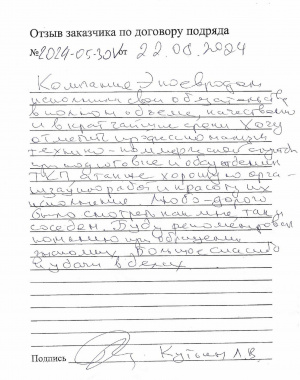 Отзыв заказчика по договору подряда
№2024-05-30V от 22.08.2024
Компания Экоевродом
исполнила свои обязательства
в полном объеме, качественно
и в кратчайшие сроки. Хочу
отметить профессионализм
технико-коммерческой
при подготовке и обсуждении
ТКП а также хорошую орга-
низацию работ и красоту их
исполнения. Любо-дорого
было смотреть как мне, так и
соседям. Буду рекомендовать
компанию при обращении
знакомых. Большое спасибо
и удачи в делах.
Подпись Л.В.